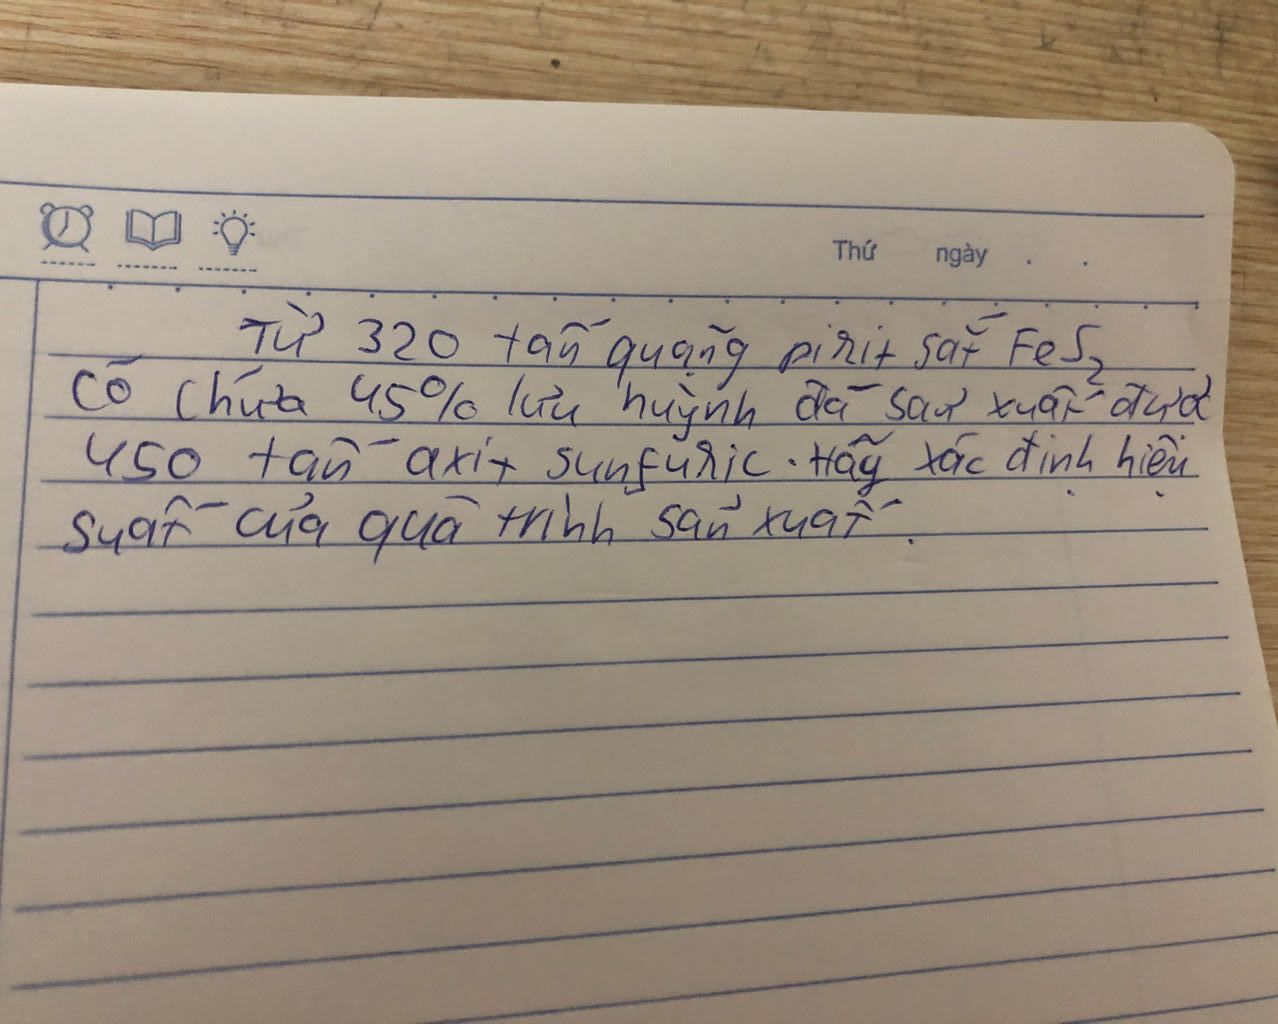 Thứ ngày . .
Từ 320 tấn quặng pirit sắt FeS₂
có chứa 45% lưu huỳnh đã sản xuất được
450 tấn axit sunfuric. Hãy xác định hiệu
suất của quá trình sản xuất.